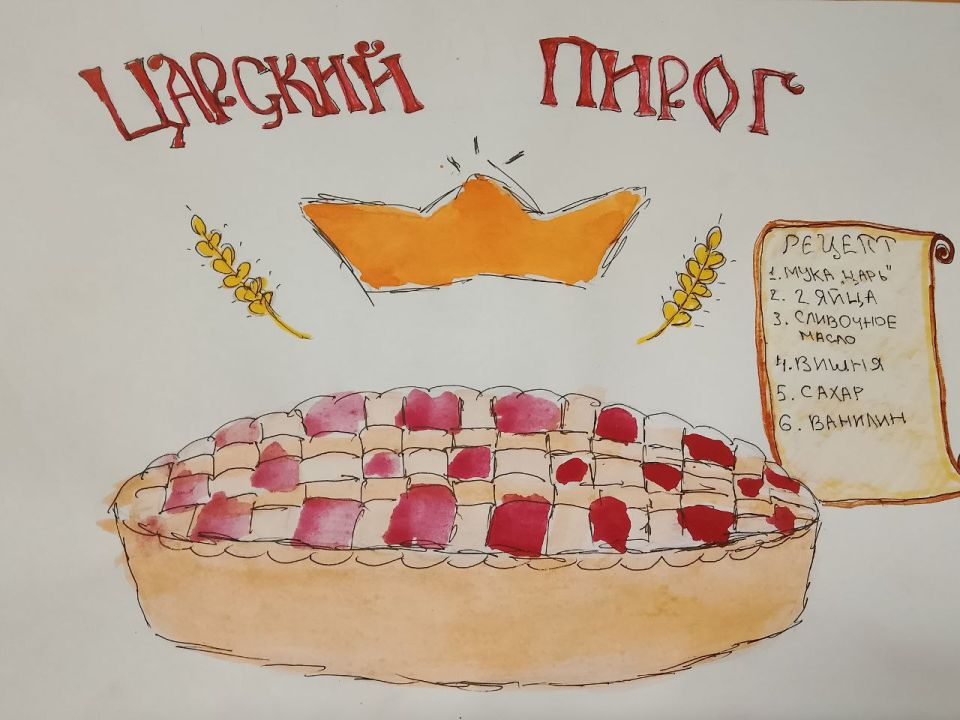 ЦАРСКИЙ ПИРОГ
РЕЦЕПТ
1. МУКА „ЦАРЬ"
2. 2 ЯЙЦА
3. СЛИВОЧНОЕ
МАСЛО
4. ВИШНЯ
5. САХАР
6. ВАНИЛИН